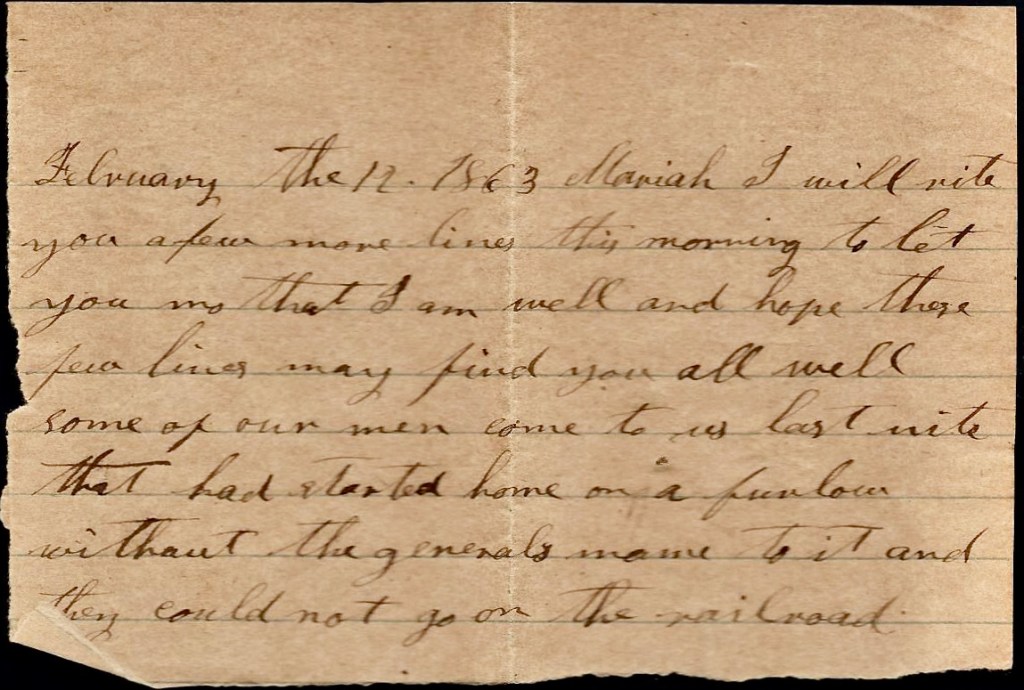 February the 12. 1863 Mariah I will rite
you a few more lines this morning to let
you no that I am well and hope these
few lines may find you all well
some of our men come to us last nite
that had started home on a furlow
without the generals name to it and
they could not go on the railroad